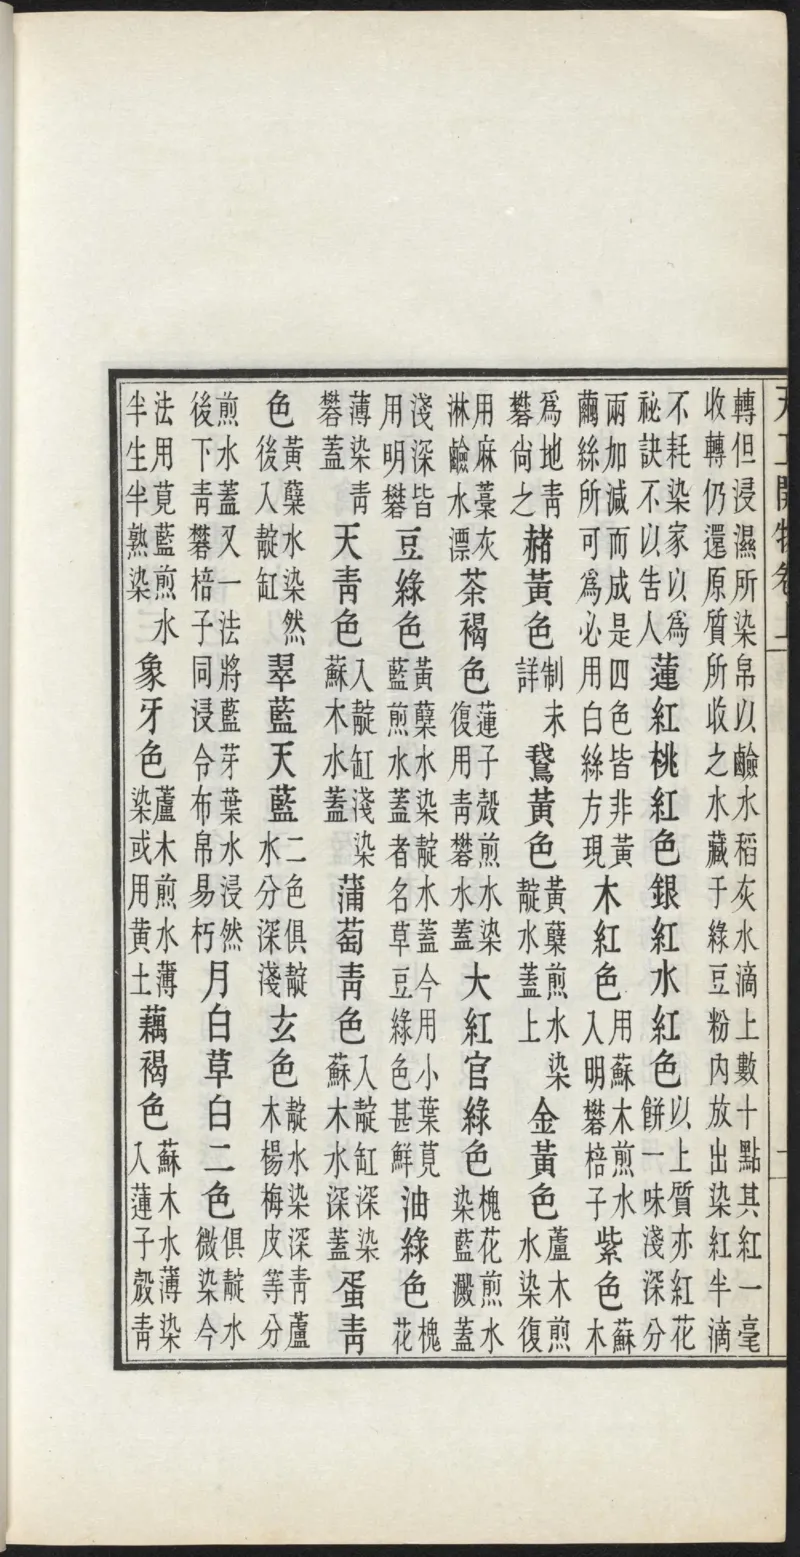 天工開物卷上
轉但浸濕所染帛以鹼水稻灰水滴上數十點其紅一毫收轉仍還原質所收之水藏于綠豆粉內放出染紅半滴
不耗染家以爲祕訣不以告人蓮紅桃紅色銀紅水紅色以上質亦紅花餅一味淺深分
兩加減而成是四色皆非黃繭絲所可爲必用白絲方現木紅色用蘇木煎水入明礬棓子紫色蘇木
爲地青礬尚之赭黃色制未詳鵞黃色黃蘗煎水染靛水蓋上金黃色蘆木煎水染復
用麻藁灰淋鹼水漂茶褐色蓮子殼煎水染復用青礬水蓋大紅官綠色槐花煎水染藍澱蓋
淺深皆用明礬豆綠色黃蘗水染靛水蓋今用小葉莧藍煎水蓋者名草豆綠色甚鮮油綠色槐花
薄染青礬蓋天青色入靛缸淺染蘇木水蓋蒲萄青色入靛缸深染蘇木水深蓋蛋青
色黃蘗水染然後入靛缸翠藍天藍二色俱靛水分深淺玄色靛水染深青蘆木楊梅皮等分
煎水蓋又一法將藍芽葉水浸然後下青礬棓子同浸令布帛易朽月白草白二色俱靛水微染今
法用莧藍煎水半生半熟染象牙色蘆木煎水薄染或用黃土藕褐色蘇木水薄染入蓮子殼青